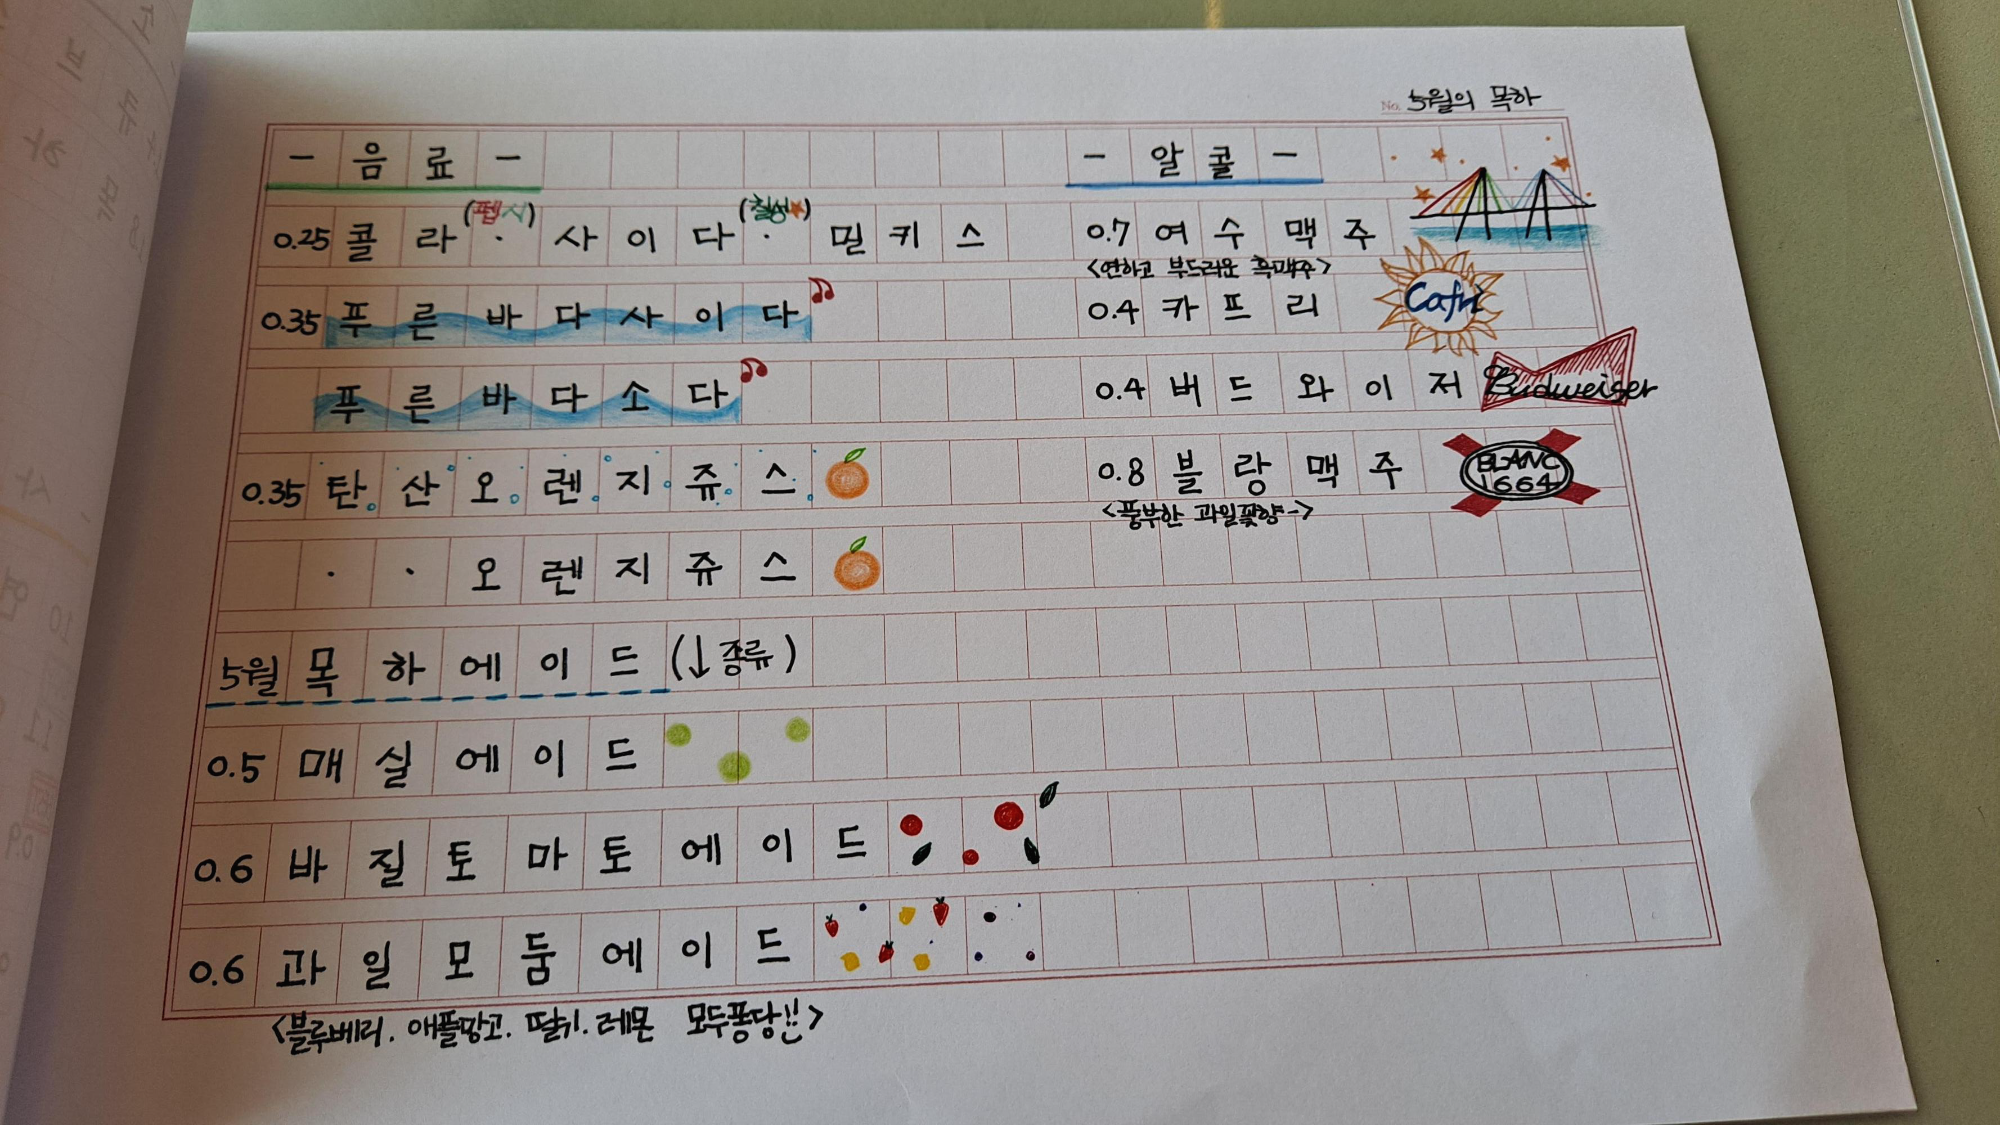 No. 5월의 목하
- 음료 -
0.25 콜라(펩시)·사이다(칠성)·밀키스
0.35 푸른바다사이다
푸른바다소다
0.35 탄산오렌지쥬스
· · 오렌지쥬스
5월 목하에이드 (↓종류)
0.5 매실에이드
0.6 바질토마토에이드
0.6 과일모둠에이드
<블루베리. 애플망고. 딸기. 레몬 모두퐁당!!>
- 알콜 -
0.7 여수맥주
<연하고 부드러운 흑맥주>
0.4 카프리
Cafri
0.4 버드와이저 Budweiser
0.8 블랑맥주
BLANC
1664
<풍부한 과일꽃향->